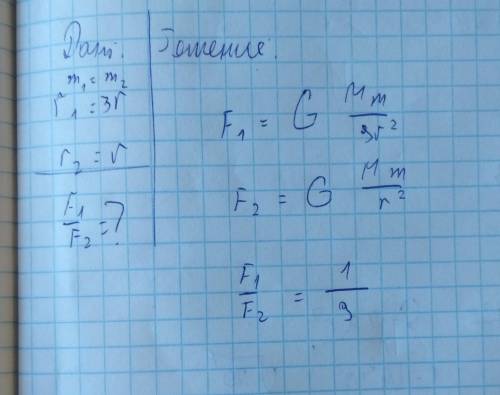 Дано:
m₁ = m₂
r₁ = 3r
r₂ = r
F₁/F₂ = ?
Решение:
F₁ = G Mm/9r²
F₂ = G Mm/r²
F₁/F₂ = 1/9